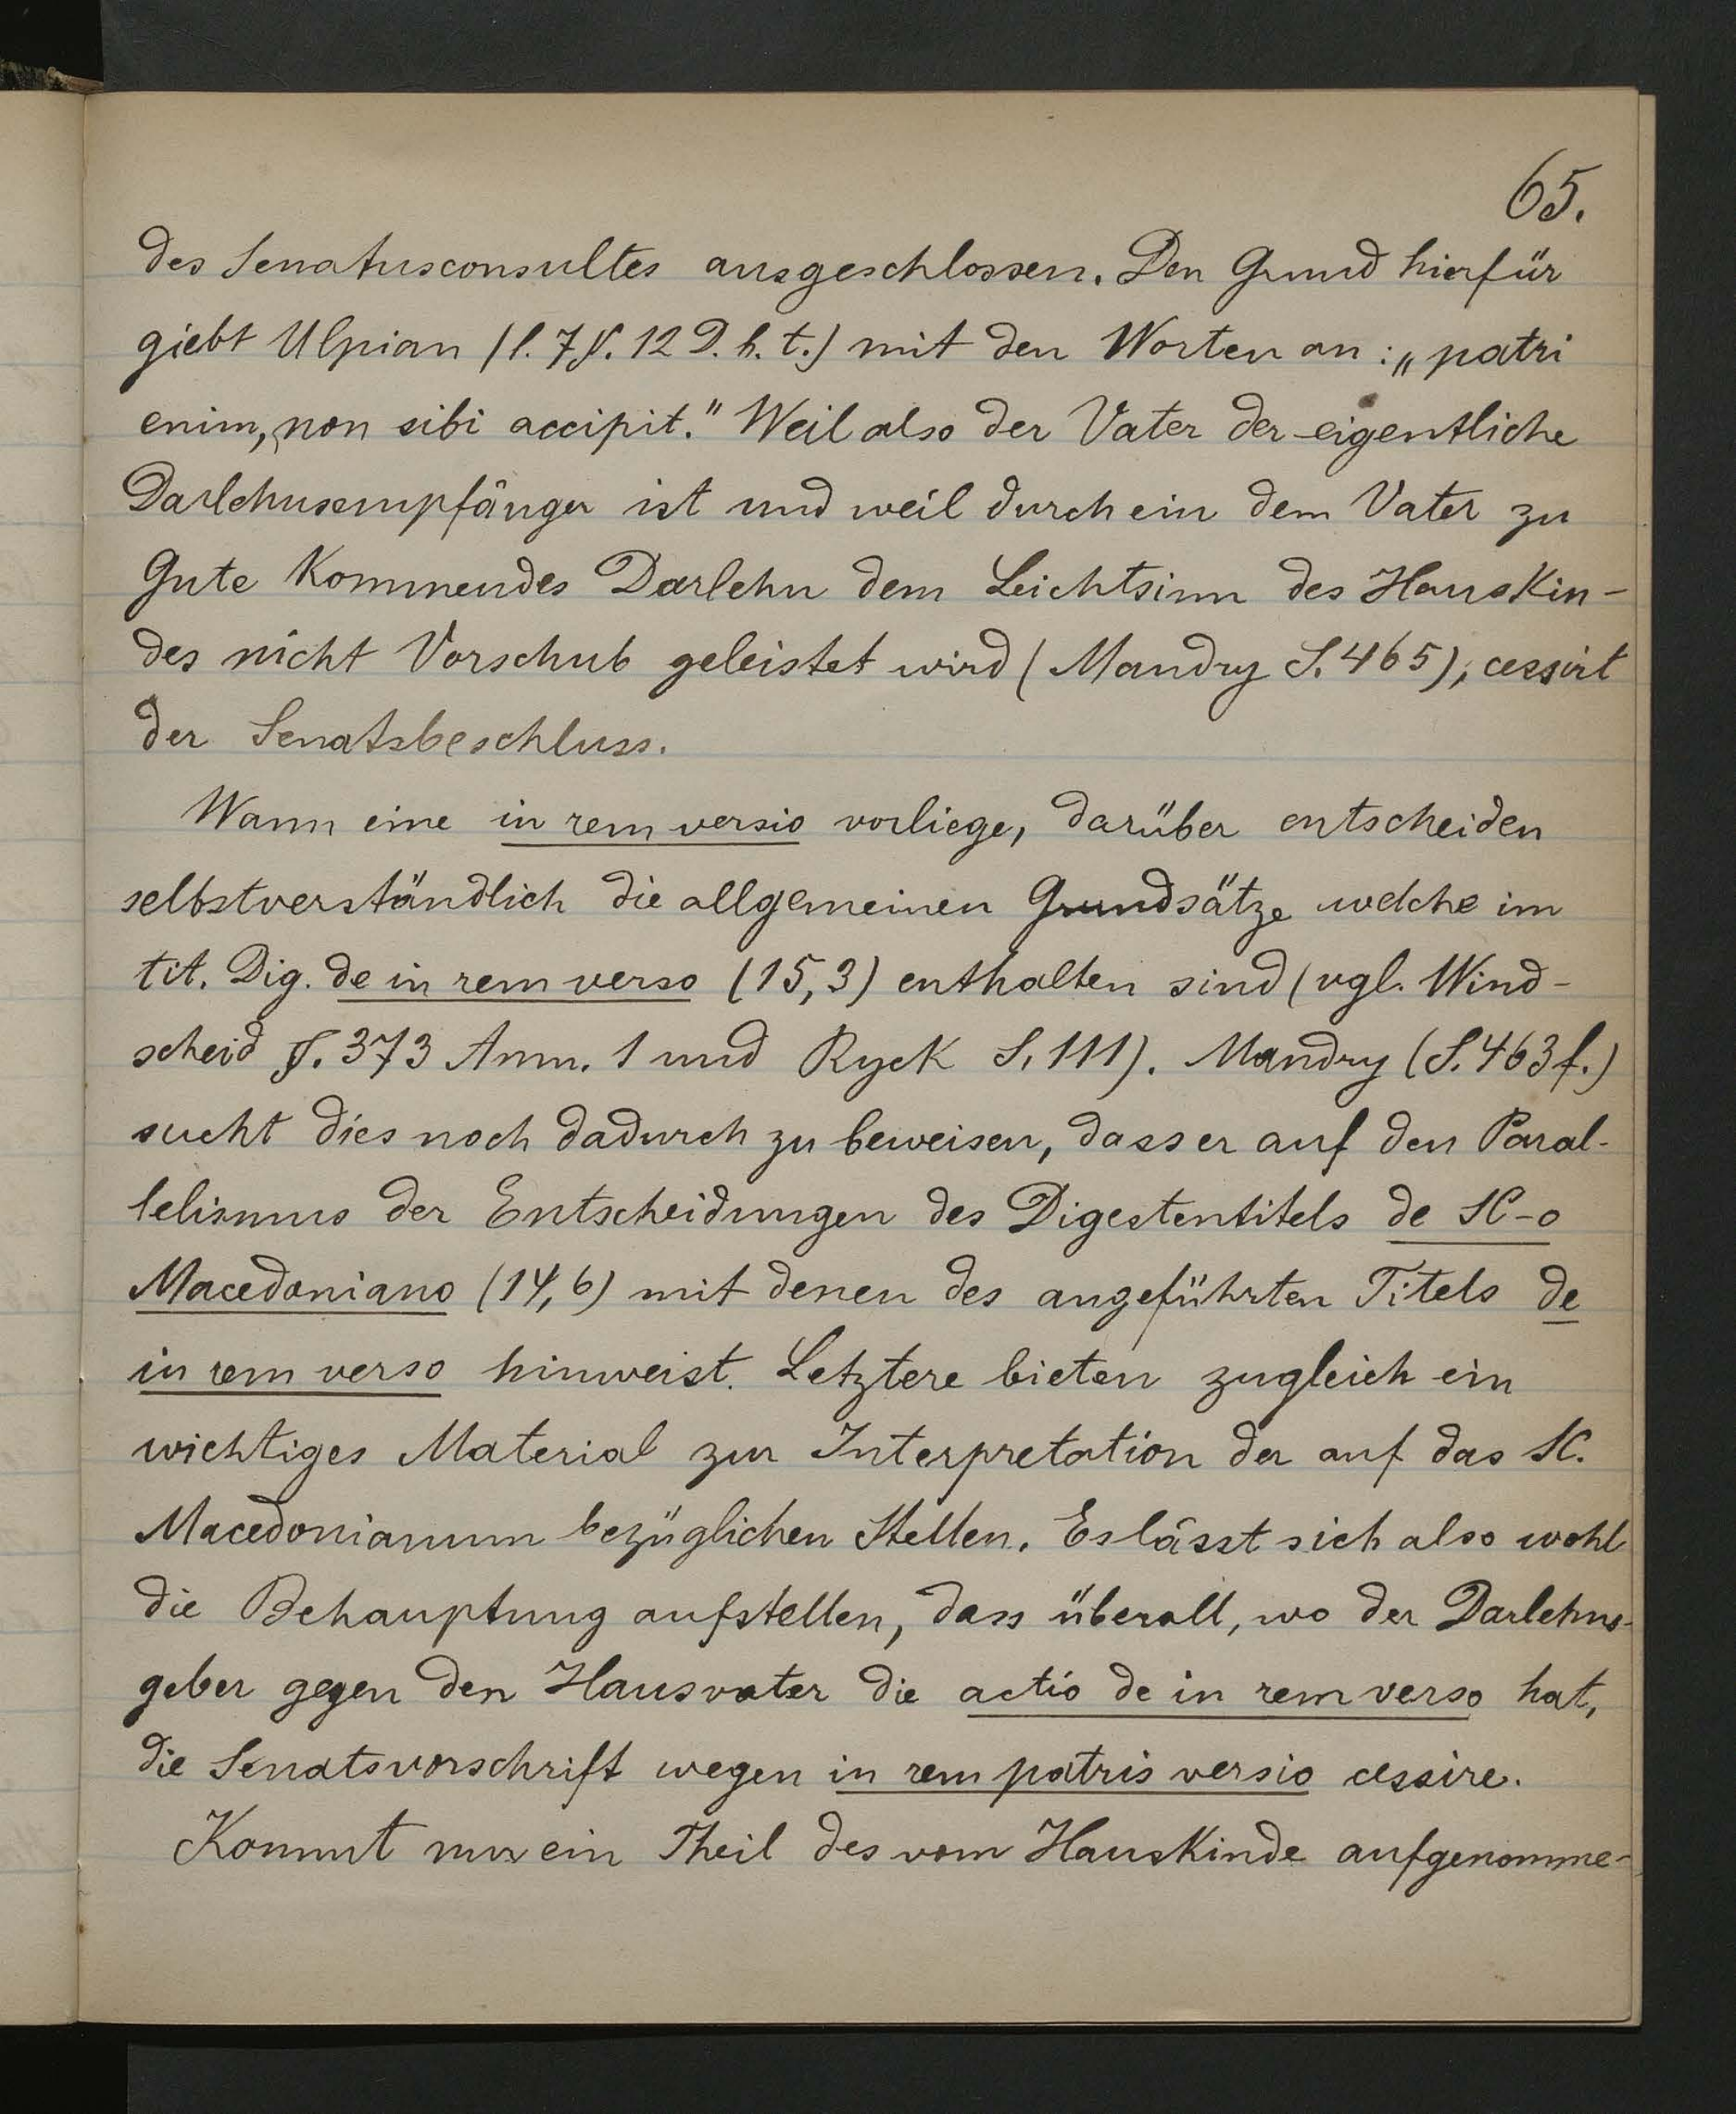 65.
des Senatusconsultes ausgeschlossen. Den Grund hierfür
giebt Ulpian (l. 7 §. 12 D. h. t.) mit den Worten an: „patri
enim, non sibi accipit." Weil also der Vater der eigentliche
Darlehnsempfänger ist und weil durch ein dem Vater zu
Gute kommendes Darlehn dem Leichtsinn des Hauskin-
des nicht Vorschub geleistet wird (Mandry S. 465), cessirt
der Senatsbeschluss.
Wann eine in rem versio vorliege, darüber entscheiden
selbstverständlich die allgemeinen Grundsätze welche im
tit. Dig. de in rem verso (15,3) enthalten sind (vgl. Wind-
scheid §. 373 Anm. 1 und Ryck S. 111). Mandry (S. 463 f.)
sucht dies noch dadurch zu beweisen, dass er auf den Paral-
lelismus der Entscheidungen des Digestentitels de SC-o
Macedoniano (14,6) mit denen des angeführten Titels de
in rem verso hinweist. Letztere bieten zugleich ein
wichtiges Material zur Interpretation der auf das SC.
Macedonianum bezüglichen Stellen. Es lässt sich also wohl
die Behauptung aufstellen, dass überall, wo der Darlehns-
geber gegen den Hausvater die actio de in rem verso hat,
die Senatsvorschrift wegen in rem patris versio cessire.
Kommt nur ein Theil des vom Hauskinde aufgenomme-